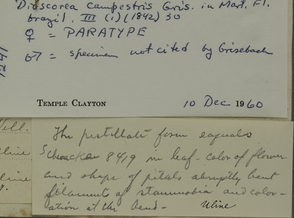 Dioscorea campestris Gris. in Mart. Fl.
brazil. III (1) (1842) 30
♀ = PARATYPE
♂ = specimen not cited by Grisebach
TEMPLE CLAYTON 10 Dec 1960
The pistillate form equals
Schwacke 8419 in leaf-color of flower
and shape of petals abruptly bent
filaments of staminodia and color-
ation at the bend. Uline